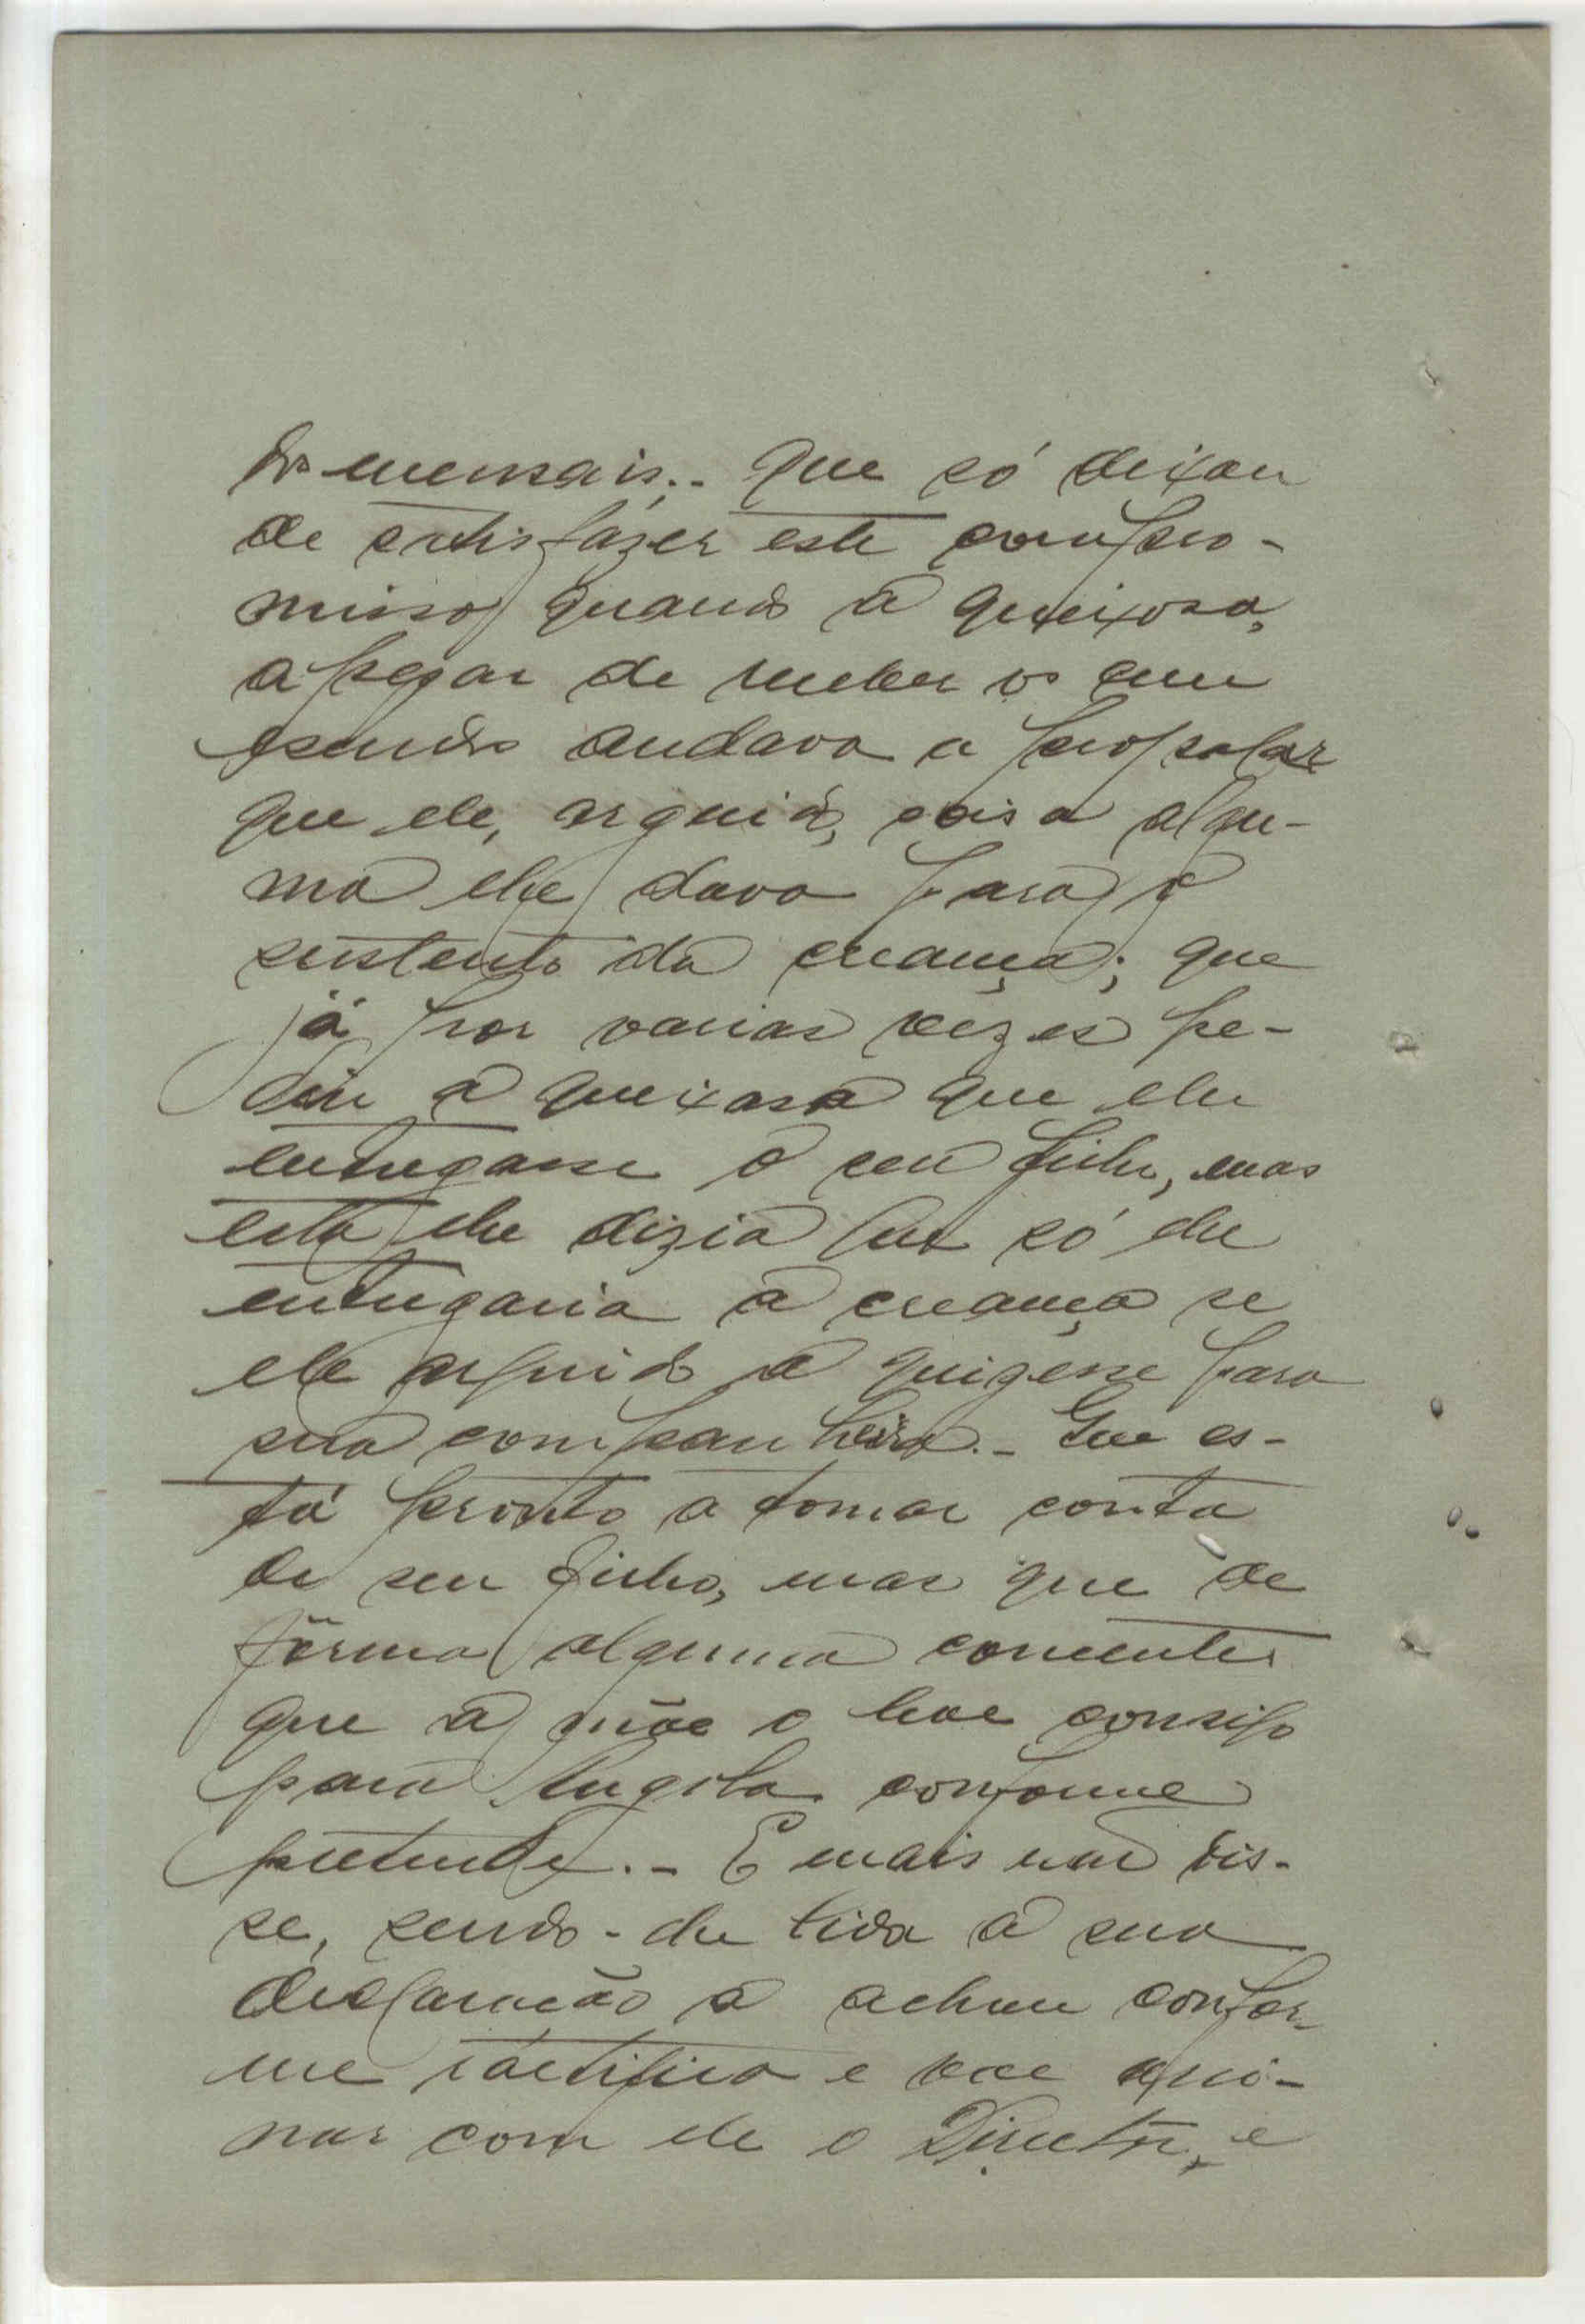 dos mensais.- Que só deixou
de satisfazer este compro-
misso quando a queixosa,
apesar de receber os cem
escudos andava a propalar
que ele, arguido, coisa algu-
ma lhe dava para o
sustento da creança; que
já por varias vezes pe-
diu a queixosa que lhe
entregasse o seu filho, mas
esta lhe dizia que só lhe
entregaria a creança se
ele arguido a quizesse para
sua companheira.- Que es-
tá pronto a tomar conta
do seu filho, mas que de
fórma alguma consente
que a mãe o leve consigo
para Angola conforme
pretende.- E mais não dis-
se, sendo-lhe lida a sua
declaração a achou confor-
me ractifica e vae assi-
nar com ele o Director, e